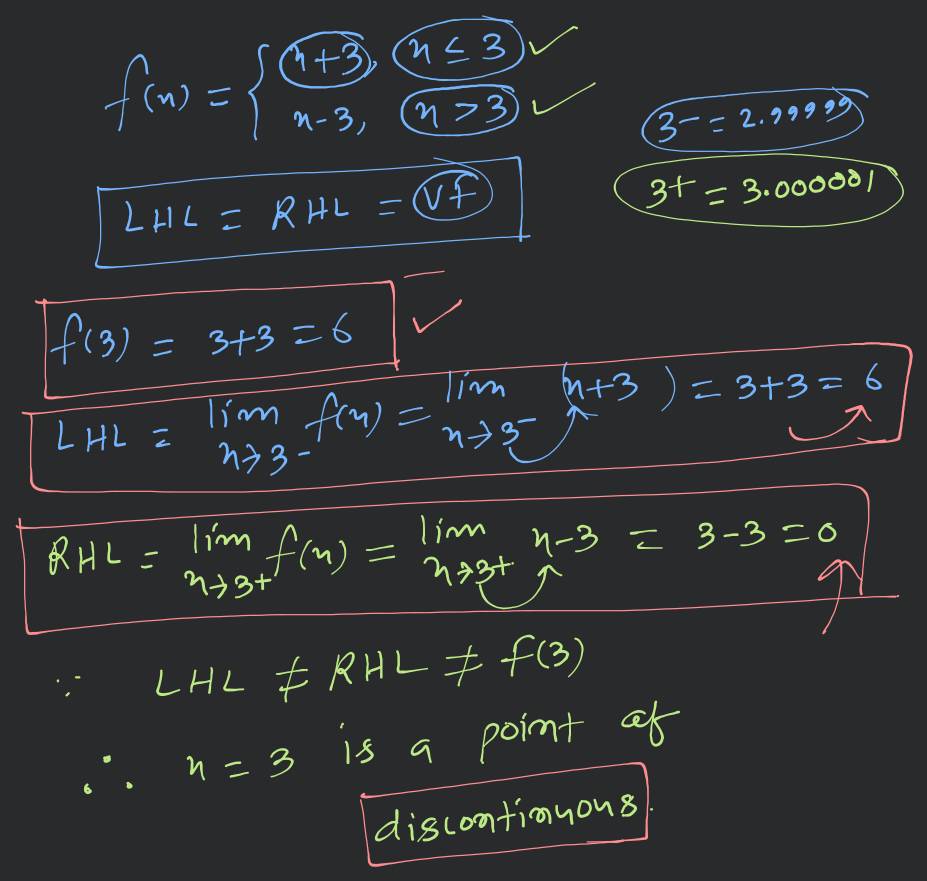 f(x) = { x+3, x ≤ 3
x-3, x > 3
3- = 2.99999
3+ = 3.000001
LHL = RHL = VF
f(3) = 3+3 = 6
LHL = lim x→3- f(x) = lim x→3- (x+3) = 3+3 = 6
RHL = lim x→3+ f(x) = lim x→3+ x-3 = 3-3 = 0
∵ LHL ≠ RHL ≠ f(3)
∴ x = 3 is a point of
discontinuous.